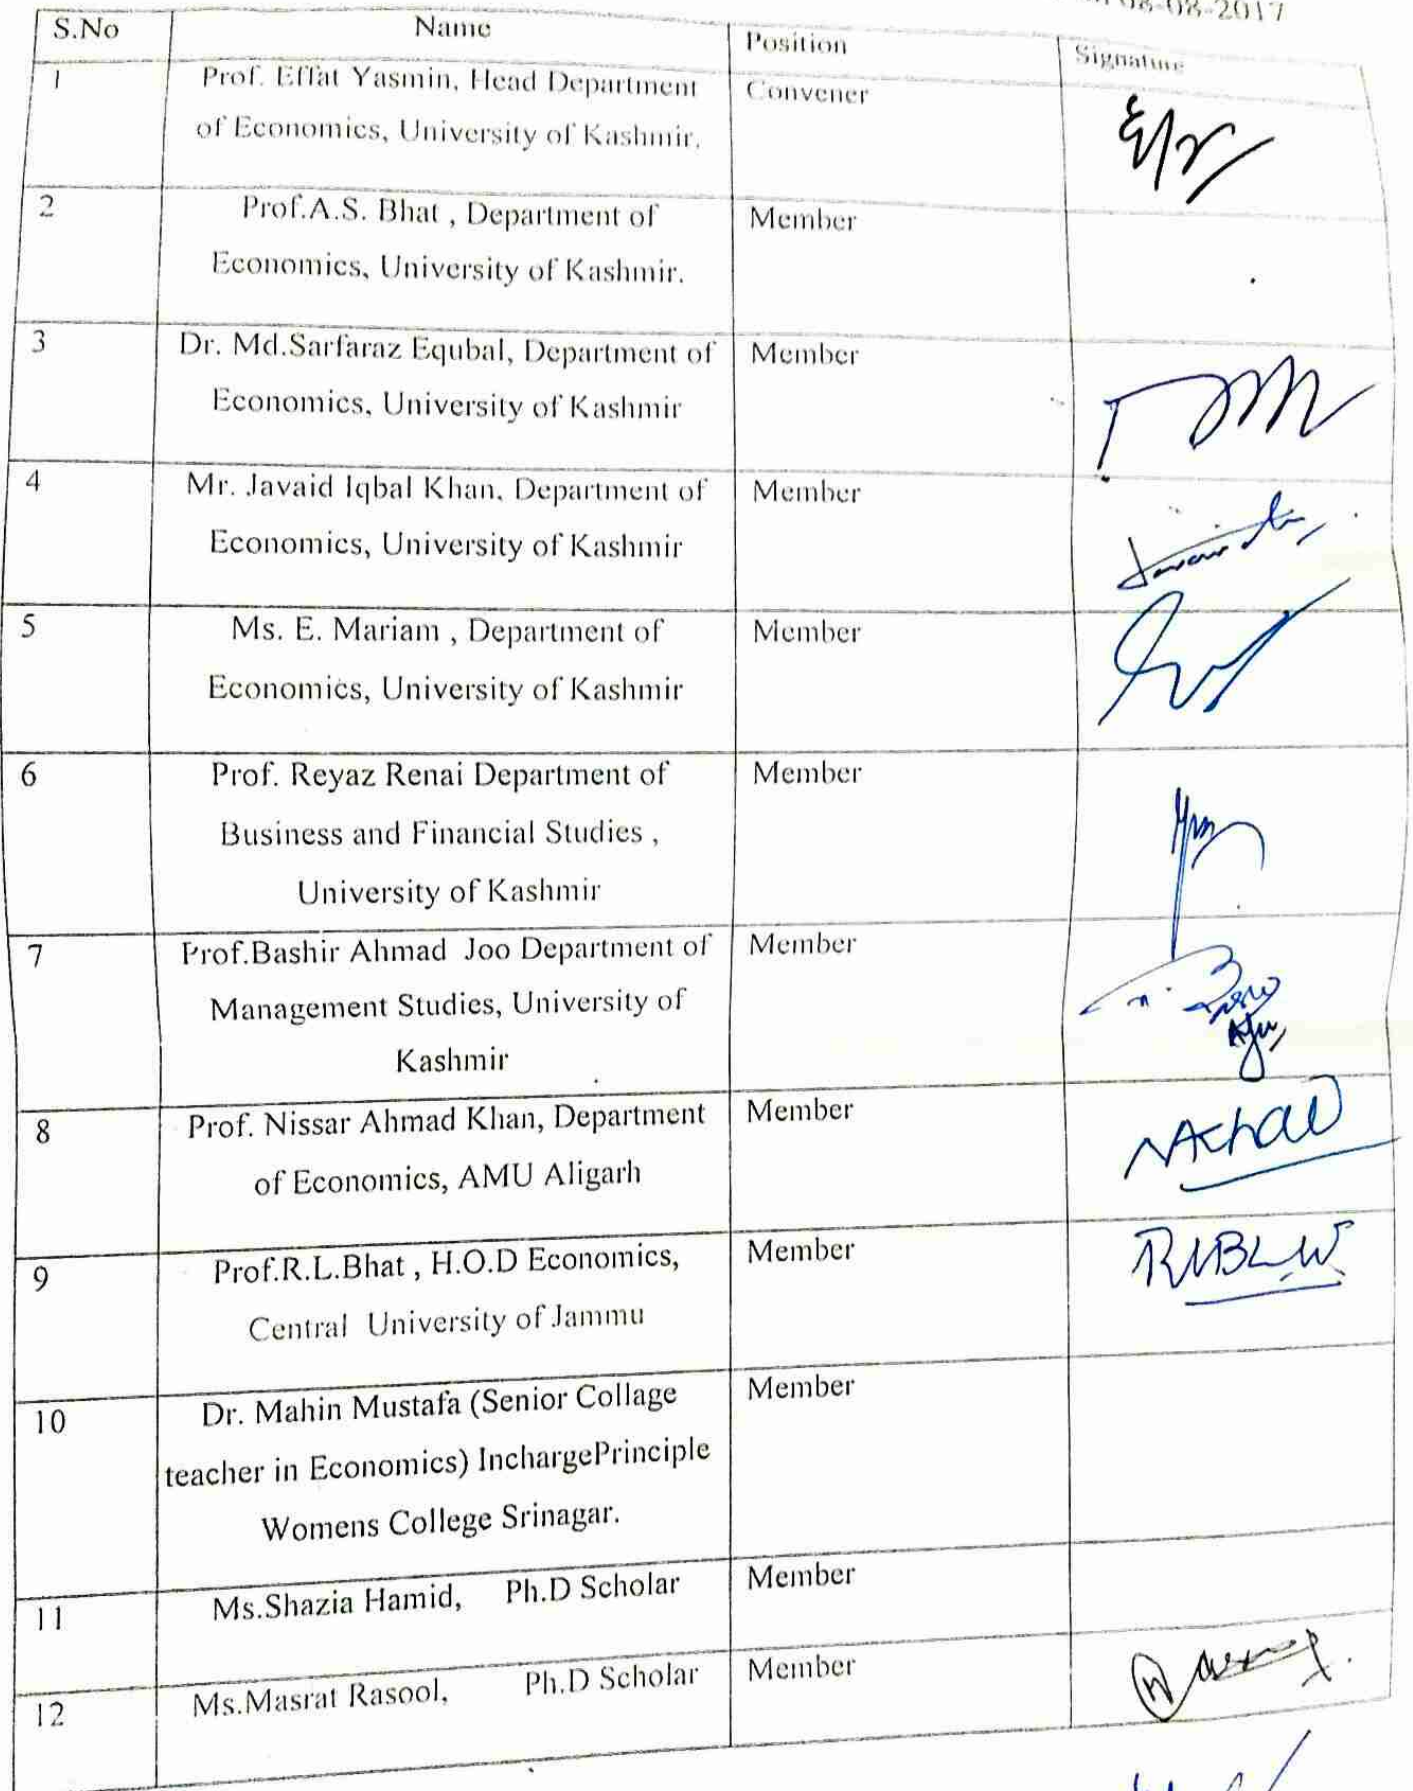 08-08-2017
S.No Name Position Signature
1 Prof. Effat Yasmin, Head Department Convener
of Economics, University of Kashmir.
2 Prof.A.S. Bhat , Department of Member
Economics, University of Kashmir.
3 Dr. Md.Sarfaraz Equbal, Department of Member
Economics, University of Kashmir
4 Mr. Javaid Iqbal Khan, Department of Member
Economics, University of Kashmir
5 Ms. E. Mariam , Department of Member
Economics, University of Kashmir
6 Prof. Reyaz Renai Department of Member
Business and Financial Studies ,
University of Kashmir
7 Prof.Bashir Ahmad Joo Department of Member
Management Studies, University of
Kashmir
8 Prof. Nissar Ahmad Khan, Department Member
of Economics, AMU Aligarh
9 Prof.R.L.Bhat , H.O.D Economics, Member
Central University of Jammu
10 Dr. Mahin Mustafa (Senior Collage Member
teacher in Economics) InchargePrinciple
Womens College Srinagar.
11 Ms.Shazia Hamid, Ph.D Scholar Member
12 Ms.Masrat Rasool, Ph.D Scholar Member